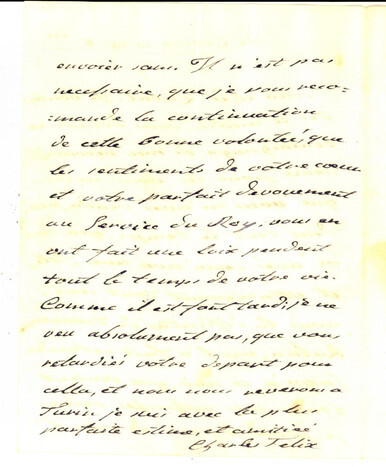 envoier sans Il n'est pas
necessaire, que je vous reco-
-mande la continuation
de cette bonne volonteé, que
les sentiments de votre coeur
et votre parfait devouement
au Service du Roy, vous en
ont fait une loix pendent
tout le temps de votre vie.
Comme il est fort tard, je ne
veu absolument pas, que vous
retardiés votre depart pour
cella, et nous nous reverons a
Turin je suis avec la plus
parfaite estime, et amitieé
Charles Felix